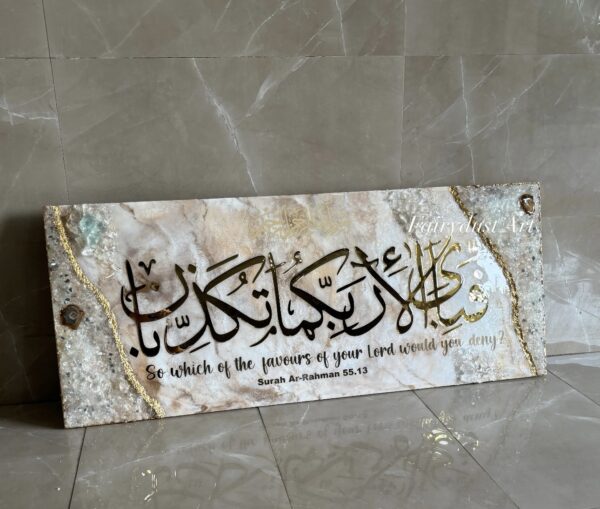 Fairydust Art
فبأي آلاء ربكما تكذبان
So which of the favours of your Lord would you deny?
Surah Ar-Rahman 55.13